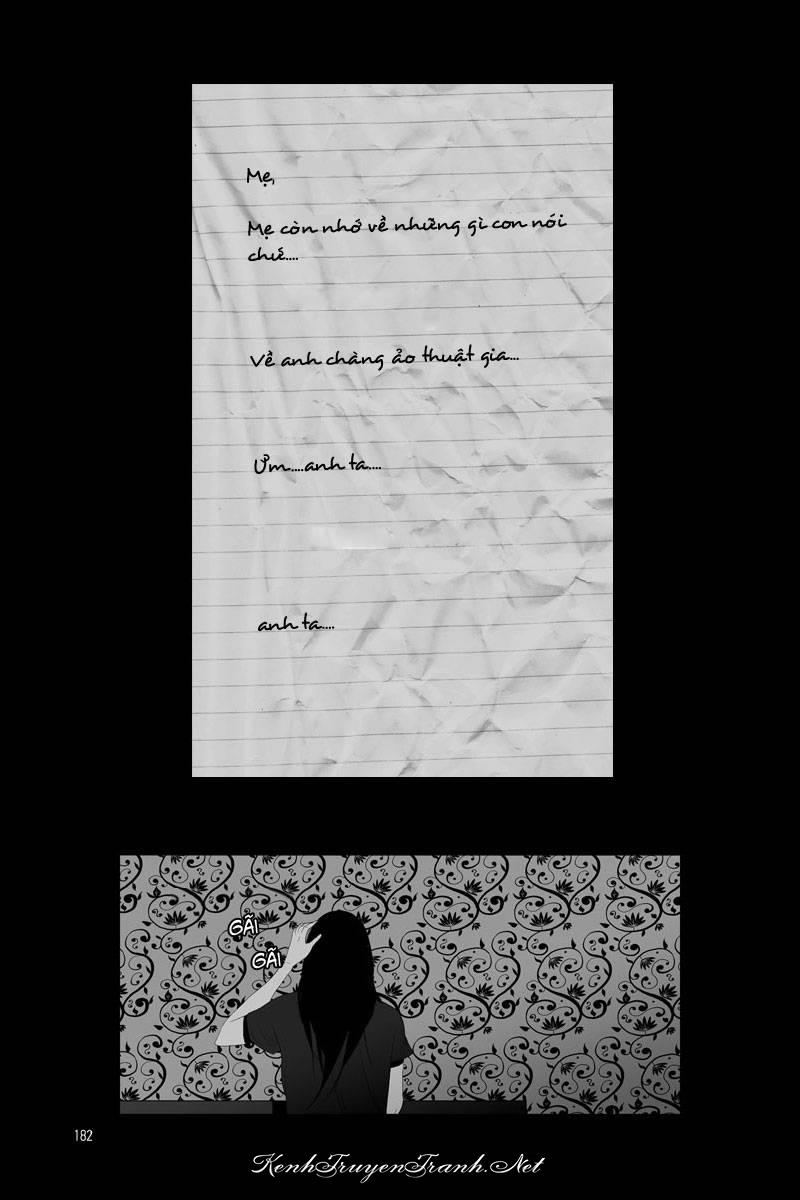 Mẹ,
Mẹ còn nhớ về những gì con nói
chứ....
Về anh chàng ảo thuật gia...
Ừm....anh ta....
anh ta....
GÃI
GÃI
182
KenhTruyenTranh.Net